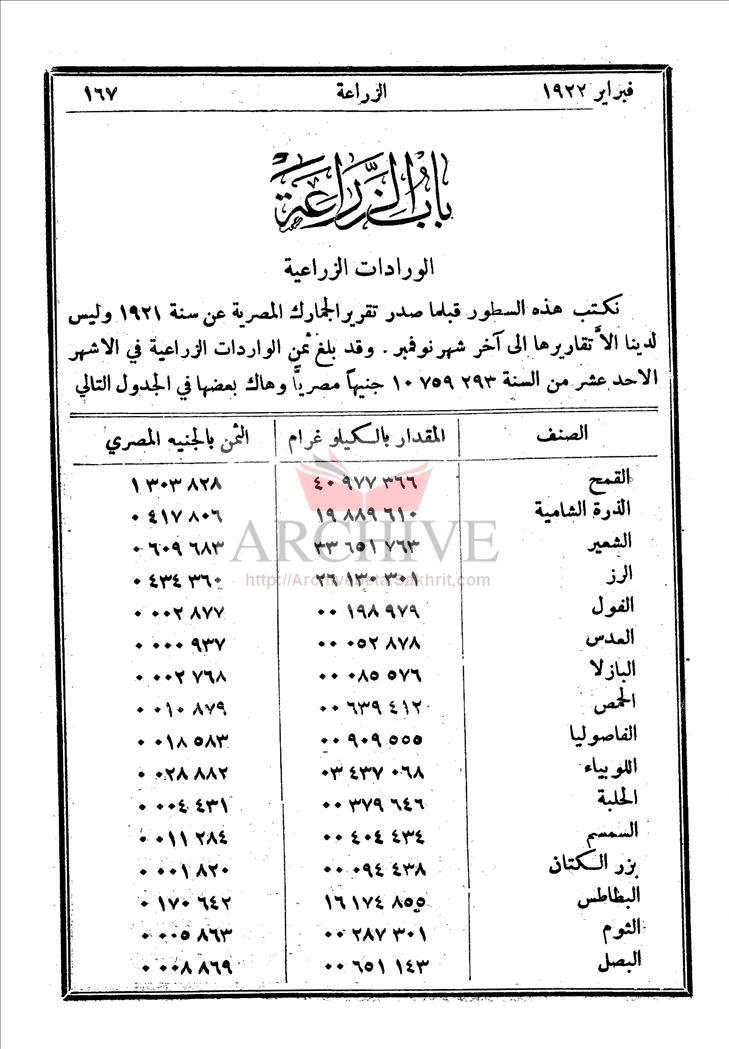 فبراير ١٩٢٢ الزراعة ١٦٧
باب الزراعة
الورادات الزراعية
نكتب هذه السطور قبلما صدر تقرير الجمارك المصرية عن سنة ١٩٢١ وليس
لدينا الاَّ تقاريرها الى آخر شهر نوفمبر . وقد بلغ ثمن الواردات الزراعية في الاشهر
الاحد عشر من السنة ٢٩٣ ٧٥٩ ١٠ جنيهاً مصريًّا وهاك بعضها في الجدول التالي
الصنف المقدار بالكيلو غرام الثمن بالجنيه المصري
القمح ٣٦٦ ٩٧٧ ٤٠ ٨٢٨ ٣٠٣ ١
الذرة الشامية ٦١٠ ٨٨٩ ١٩ ٨٠٦ ٤١٧ ٠
الشعير ٧٦٣ ٦٥١ ٣٣ ٦٨٣ ٦٠٩ ٠
الرز ٣٠١ ١٣٠ ٢٦ ٣٦٠ ٤٣٤ ٠
الفول ٩٧٩ ١٩٨ ٠٠ ٨٧٧ ٠٠٢ ٠
العدس ٨٧٨ ٠٥٢ ٠٠ ٩٣٧ ٠٠٠ ٠
البازلا ٥٧٦ ٠٨٥ ٠٠ ٧٦٨ ٠٠٢ ٠
الحمص ٤١٢ ٦٣٩ ٠٠ ٨٧٩ ٠١٠ ٠
الفاصوليا ٥٥٥ ٩٠٩ ٠٠ ٥٨٣ ٠١٨ ٠
اللوبياء ٠٦٨ ٤٣٧ ٠٣ ٨٨٢ ٠٢٨ ٠
الحلبة ٦٤٦ ٣٧٩ ٠٠ ٤٣١ ٠٠٤ ٠
السمسم ٤٣٤ ٤٠٤ ٠٠ ٢٨٤ ٠١١ ٠
بزر الكتان ٤٣٨ ٠٩٤ ٠٠ ٨٢٠ ٠٠١ ٠
البطاطس ٨٥٥ ١٧٤ ١٦ ٦٤٢ ١٧٠ ٠
الثوم ٣٠١ ٢٨٧ ٠٠ ٨٦٣ ٠٠٥ ٠
البصل ١٤٣ ٦٥١ ٠٠ ٨٦٩ ٠٠٨ ٠
ARCHIVE
http://Archivebeta.Sakhrit.com